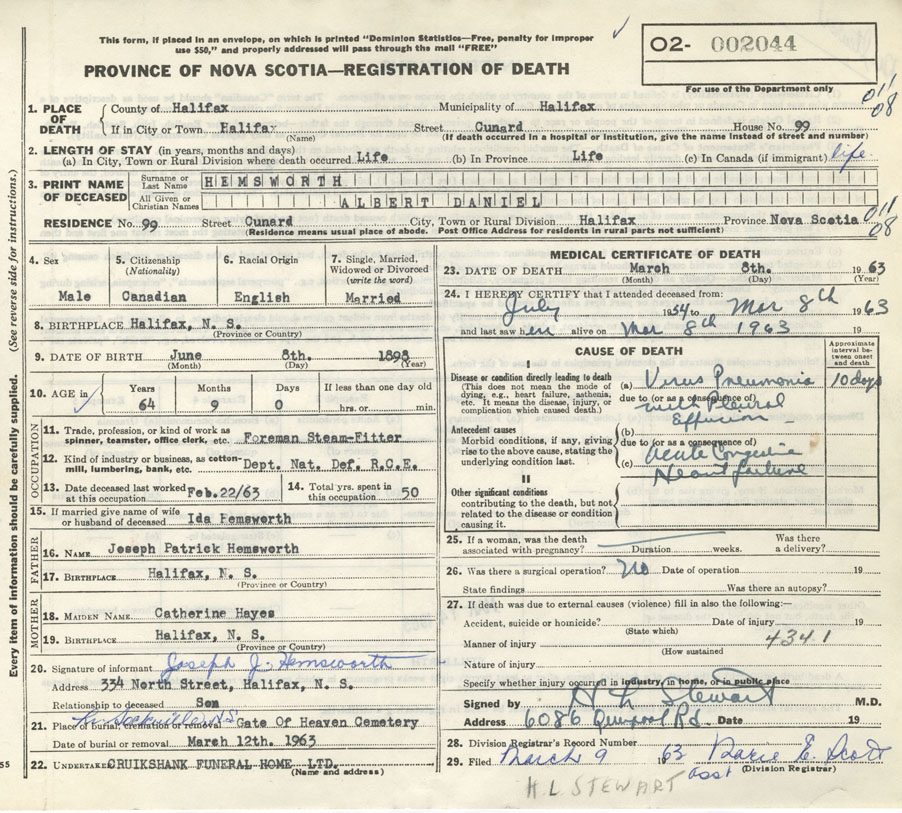 This form, if placed in an envelope, on which is printed "Dominion Statistics—Free, penalty for improper
use $50," and properly addressed will pass through the mail "FREE"
O2- 002044
PROVINCE OF NOVA SCOTIA—REGISTRATION OF DEATH
For use of the Department only
011
08
1. PLACE OF DEATH
County of Halifax Municipality of Halifax
If in City or Town Halifax Street Cunard House No. 99
(Name) (If death occurred in a hospital or institution, give the name instead of street and number)
2. LENGTH OF STAY (in years, months and days)
(a) In City, Town or Rural Division where death occurred Life (b) In Province Life (c) In Canada (if immigrant) life
3. PRINT NAME OF DECEASED
Surname or Last Name HEMSWORTH
All Given or Christian Names ALBERT DANIEL
RESIDENCE No. 99 Street Cunard City, Town or Rural Division Halifax Province Nova Scotia
(Residence means usual place of abode. Post Office Address for residents in rural parts not sufficient)
011
08
Every item of information should be carefully supplied. (See reverse side for instructions.)
4. Sex Male
5. Citizenship (Nationality) Canadian
6. Racial Origin English
7. Single, Married, Widowed or Divorced (write the word) Married
8. BIRTHPLACE Halifax, N. S.
(Province or Country)
9. DATE OF BIRTH June 8th. 1898
(Month) (Day) (Year)
10. AGE in Years Months Days If less than one day old
64 9 0 hrs. or min.
OCCUPATION
11. Trade, profession, or kind of work as spinner, teamster, office clerk, etc. Foreman Steam-Fitter
12. Kind of industry or business, as cotton-mill, lumbering, bank, etc. Dept. Nat. Def. R.C.E.
13. Date deceased last worked at this occupation Feb.22/63
14. Total yrs. spent in this occupation 50
15. If married give name of wife or husband of deceased Ida Hemsworth
FATHER
16. NAME Joseph Patrick Hemsworth
17. BIRTHPLACE Halifax, N. S.
(Province or Country)
MOTHER
18. MAIDEN NAME Catherine Hayes
19. BIRTHPLACE Halifax, N. S.
(Province or Country)
20. Signature of informant Joseph J. Hemsworth
Address 334 North Street, Halifax, N. S.
Relationship to deceased Son
21. Place of burial, cremation or removal Sackville N.S. Gate Of Heaven Cemetery
Date of burial or removal March 12th. 1963
55
22. UNDERTAKER CRUIKSHANK FUNERAL HOME LTD.
(Name and address)
MEDICAL CERTIFICATE OF DEATH
23. DATE OF DEATH March 8th. 1963
(Month) (Day) (Year)
24. I HEREBY CERTIFY that I attended deceased from:
July 1954 to Mar 8th 1963
and last saw h alive on Mar 8th 1963 19
CAUSE OF DEATH
Approximate interval between onset and death
I
Disease or condition directly leading to death
(This does not mean the mode of dying, e.g., heart failure, asthenia, etc. It means the disease, injury, or complication which caused death.)
(a) Virus Pneumonia 10 days
due to (or as a consequence of)
with Pleural
Effusion
Antecedent causes
Morbid conditions, if any, giving rise to the above cause, stating the underlying condition last.
(b)
due to (or as a consequence of)
Acute Congestive
(c) Heart failure
II
Other significant conditions
contributing to the death, but not related to the disease or condition causing it.
25. If a woman, was the death associated with pregnancy? Duration weeks. Was there a delivery?
26. Was there a surgical operation? no Date of operation 19
State findings Was there an autopsy?
27. If death was due to external causes (violence) fill in also the following:—
Accident, suicide or homicide? Date of injury 19
(State which)
Manner of injury 4341
(How sustained)
Nature of injury
Specify whether injury occured in industry, in home, or in public place
Signed by H L Stewart M.D.
Address 6086 Quinpool Rd. Date 19
28. Division Registrar's Record Number
29. Filed March 9 1963 Marie E. Scott
asst (Division Registrar)
H.L. STEWART